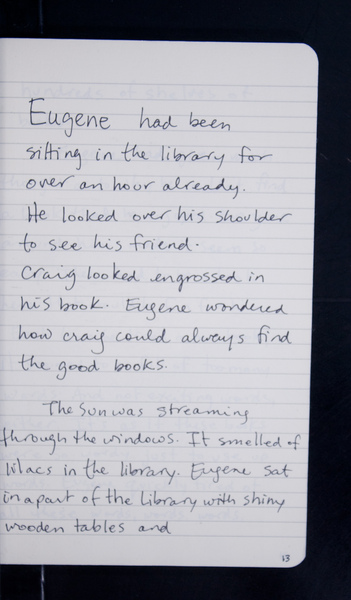 Eugene had been
sitting in the library for
over an hour already.
He looked over his shoulder
to see his friend.
Craig looked engrossed in
his book. Eugene wondered
how craig could always find
the good books.
The sun was streaming
through the windows. It smelled of
lilacs in the library. Eugene sat
in a part of the library with shiny
wooden tables and
13